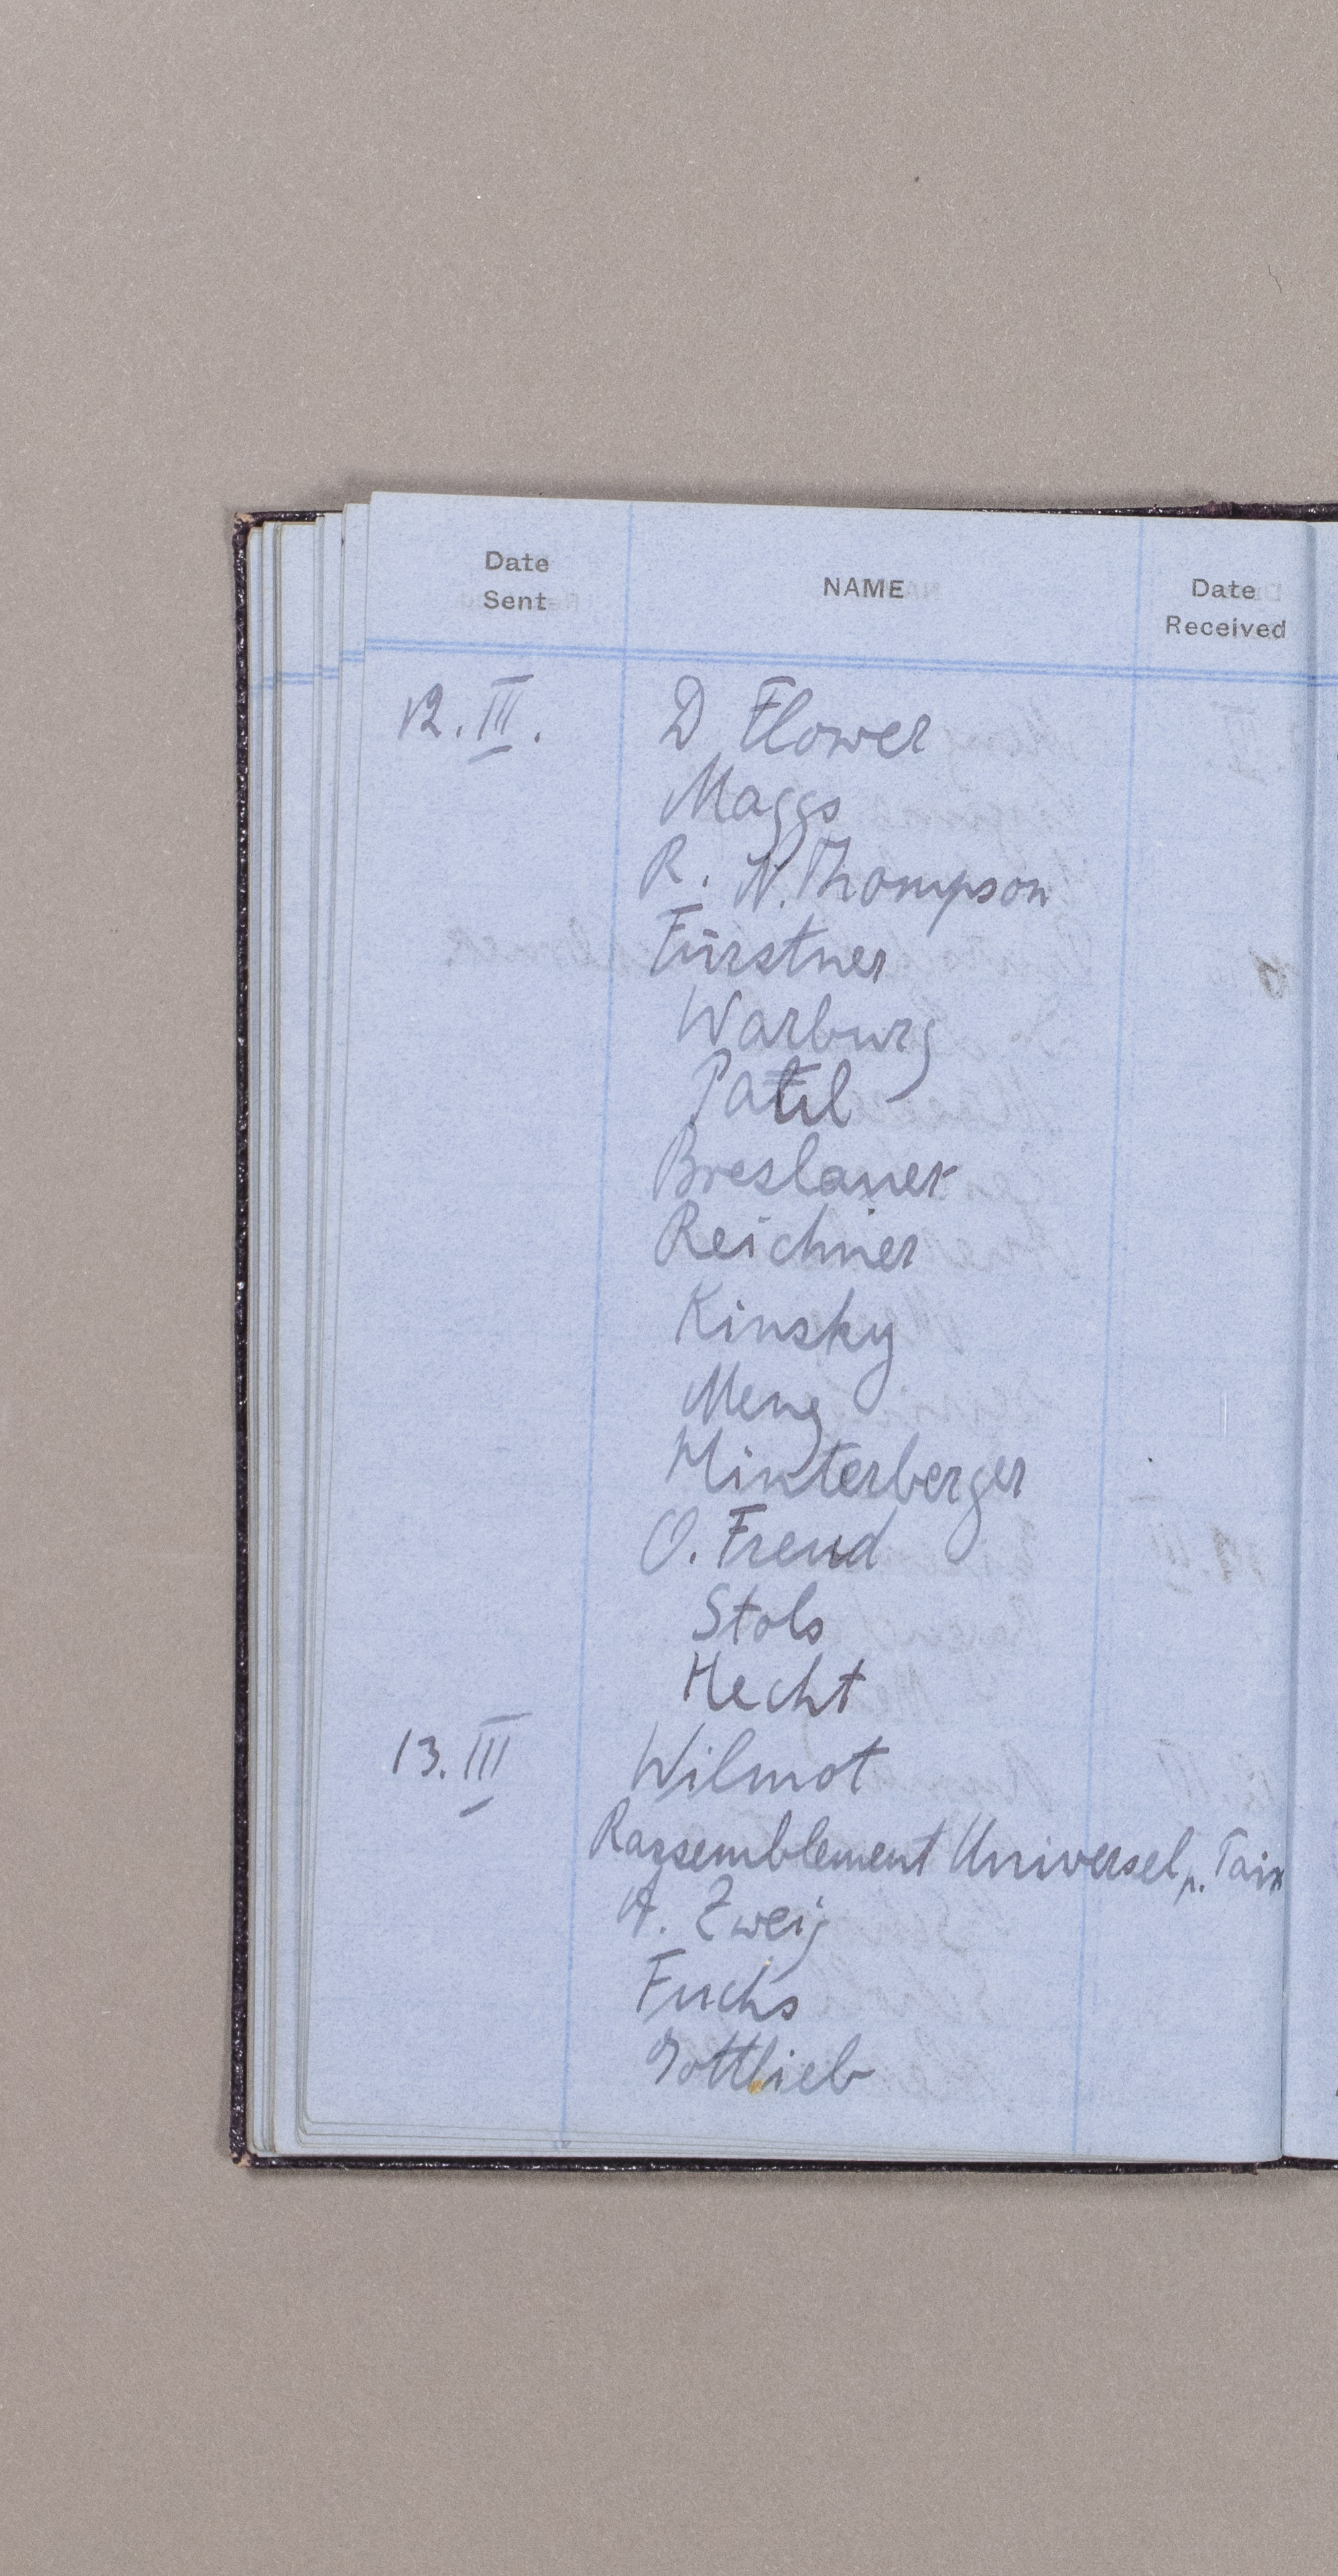 Date Sent NAME Date Received
12. III. D Flower
Maggs
R. N. Thompson
Fürstner
Warburg
Patil
Breslauer
Reichner
Kinsky
Meng
Hinterberger
O. Freud
Stols
Hecht
13. III Wilmot
Rassemblement Universel p. Paix
A. Zweig
Fuchs
Gottlieb